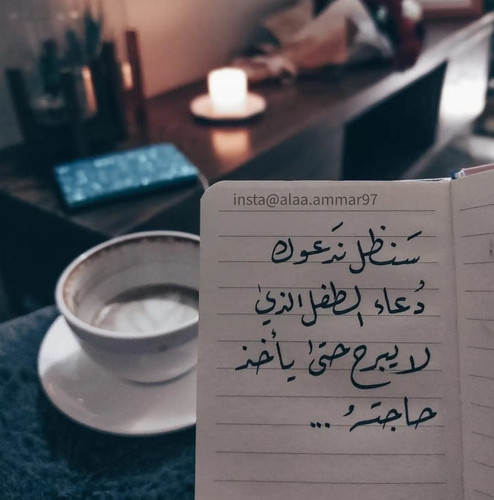 insta@alaa.ammar97
سَنظل نَدعوك
دُعاء الطفل الذي
لا يبرح حتىٰ يأخذ
حاجتهُ ...